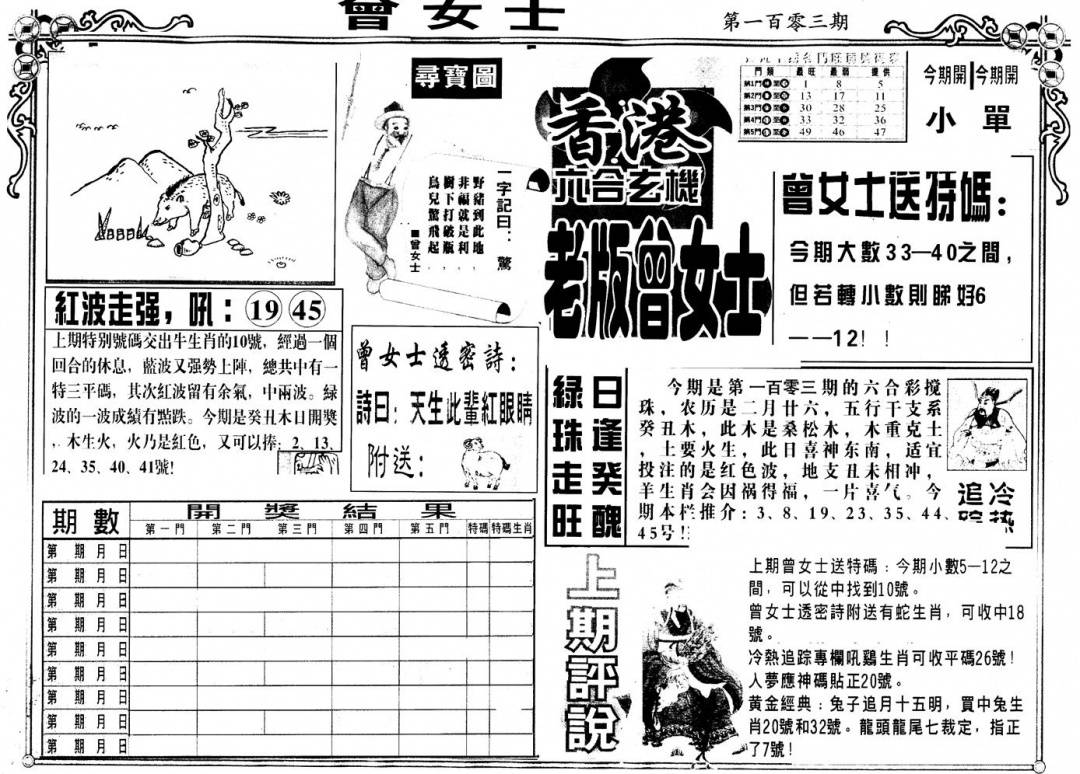 曾女士
第一百零三期
尋寶圖
一字記曰：驚
野豬到此地，
非福就是利，
樹下打破版，
鳥兒驚飛起。
■曾女士
香港
六合玄機
老版曾女士
門類 最旺 最弱 提供
第1門 1 8 5
第2門 13 17 11
第3門 30 28 25
第4門 33 32 36
第5門 49 46 47
今期開 今期開
小 單
曾女士送特碼：
今期大數33—40之間，
但若轉小數則睇好6
——12！！
紅波走强，吼：19 45
上期特别號碼交出牛生肖的10號，經過一個
回合的休息，藍波又强勢上陣，總共中有一
特三平碼，其次紅波留有余氣，中兩波。緑
波的一波成績有點跌。今期是癸丑木日開獎
，木生火，火乃是紅色，又可以捧：2、13、
24、35、40、41號!
曾女士透密詩：
詩曰：天生此輩紅眼睛
附送：
綠珠走旺
日逢癸醜
今期是第一百零三期的六合彩搅
珠，农历是二月廿六，五行干支系
癸丑木，此木是桑松木，木重克土
，土要火生，此日喜神东南，适宜
投注的是红色波，地支丑未相冲，
羊生肖会因祸得福，一片喜气。今
期本栏推介：3、8、19、23、35、44、
45号!!
冷热
追踪
期數 開獎結果
第一門 第二門 第三門 第四門 第五門 特碼 特碼生肖
第 期 月 日
第 期 月 日
第 期 月 日
第 期 月 日
第 期 月 日
第 期 月 日
第 期 月 日
第 期 月 日
第 期 月 日
上期評說
上期曾女士送特碼：今期小數5—12之
間，可以從中找到10號。
曾女士透密詩附送有蛇生肖，可收中18
號。
冷熱追踪專欄吼鷄生肖可收平碼26號！
人夢應神碼貼正20號。
黃金經典：兔子追月十五明，買中兔生
肖20號和32號。龍頭龍尾七裁定，指正
了7號！